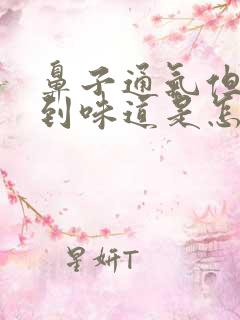 鼻子通氣但
到味道是怎
星妍T